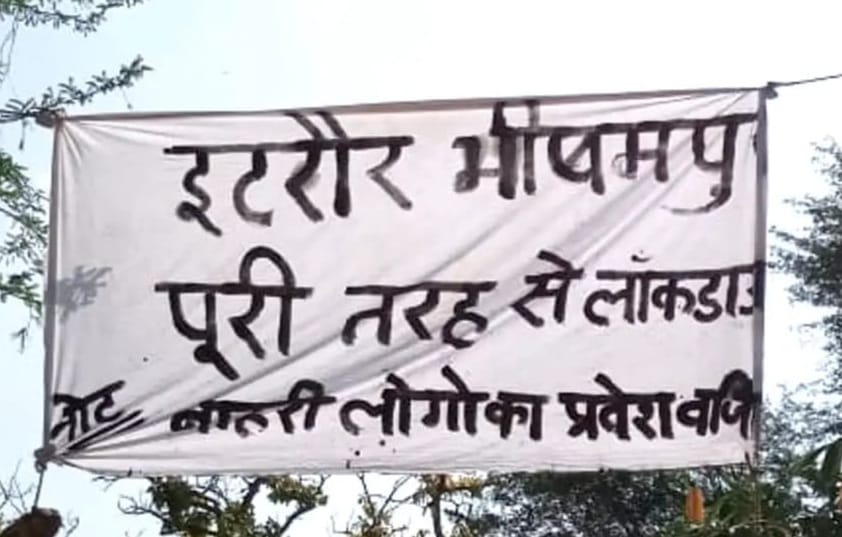 इटरौर भीषमपु
पूरी तरह से लॉकडाउ
नोट बाहरी लोगो का प्रवेश वर्जि